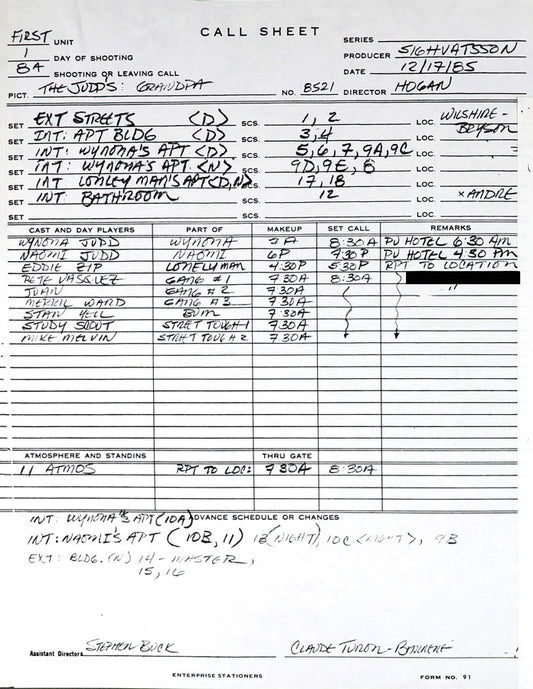 CALL SHEET
FIRST UNIT SERIES
1 DAY OF SHOOTING PRODUCER SIGHVATSSON
8A SHOOTING OR LEAVING CALL DATE 12/17/85
PICT. THE JUDD'S: GRANDPA NO. 8521 DIRECTOR HOGAN
SET EXT STREETS <D> SCS. 1, 2 LOC. WILSHIRE -
SET INT: APT BLDG <D> SCS. 3,4 LOC. BRYSON
SET INT: WYNONA'S APT <D> SCS. 5, 6, 7, 9A, 9C LOC.
SET INT: WYNONA'S APT. <N> SCS. 9D, 9E, 8 LOC.
SET INT LONLEY MAN'S APT <D,N> SCS. 17, 18 LOC.
SET INT BATHROOM SCS. 12 LOC. x ANDRE
SET SCS. LOC.
CAST AND DAY PLAYERS PART OF MAKEUP SET CALL REMARKS
WYNONA JUDD WYNONA 7A 8:30A PU HOTEL 6:30 AM
NAOMI JUDD NAOMI 6P 7:30P PU HOTEL 4:30 PM
EDDIE ZIP LONELY MAN 4:30P 5:30P RPT TO LOCATION
PETE VASQUEZ GANG #1 7:30A 8:30A
JUAN GANG #2 7:30A "
MERRIL WARD GANG #3 7:30A
STAN YELL BUM 7:30A
STUDY SCOUT STRET TOUGH-1 7:30A
MIKE MELVIN STRET TOUGH 2 7:30A
ATMOSPHERE AND STANDINS THRU GATE
11 ATMOS RPT TO LOC: 7:30A 8:30A
INT: WYNONA'S APT (10A) ADVANCE SCHEDULE OR CHANGES
INT: NAOMI'S APT (10B, 11) 13 (NIGHT), 10C <NIGHT>, 9B
EXT: BLDG. (N) 14 - MASTER,
15, 16
Assistant Directors STEPHEN BUCK CLAUDE
ENTERPRISE STATIONERS FORM NO. 91